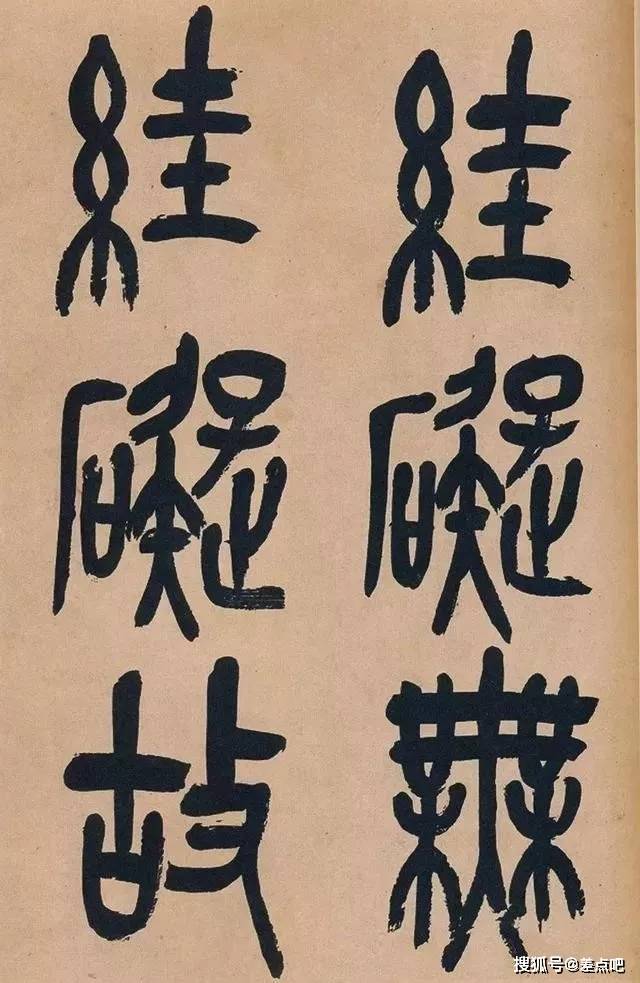 絓礙無
絓礙故
搜狐号@差点吧